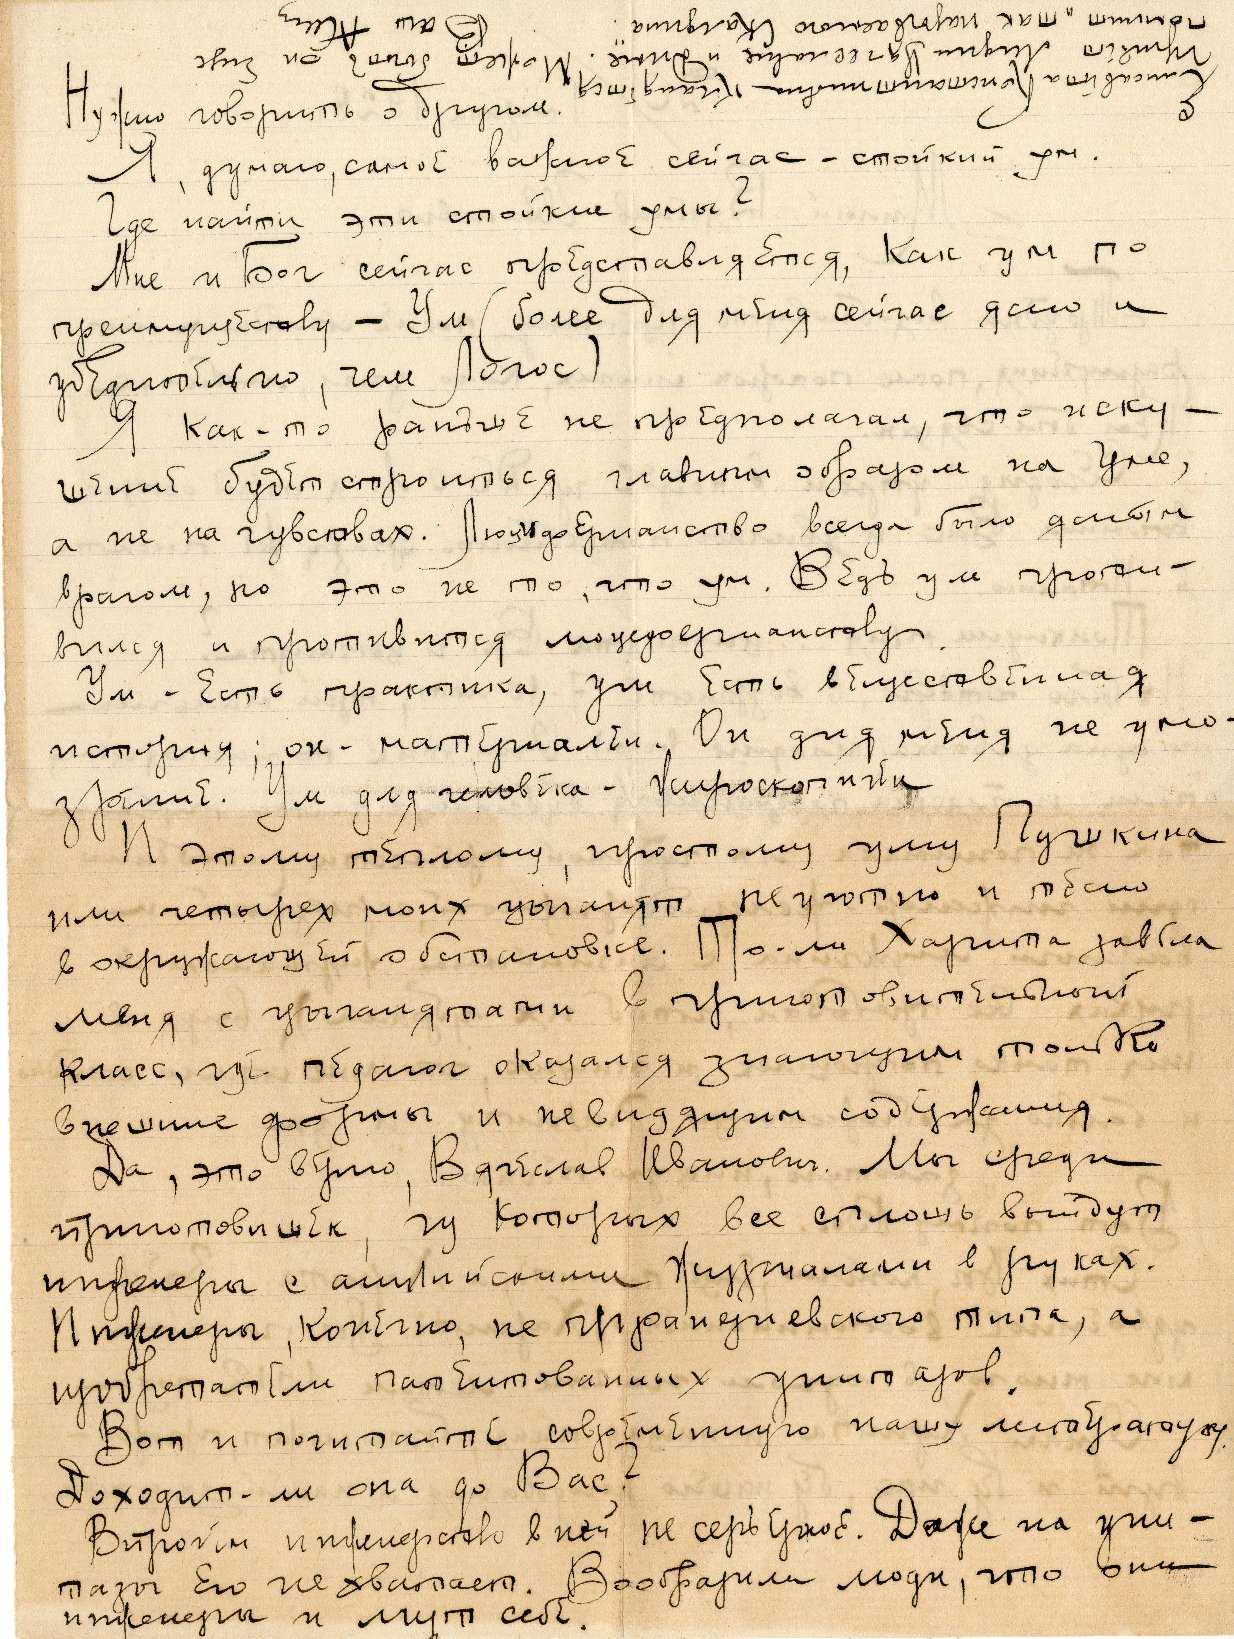 Нужно говорить о другом.
Я, думаю, самое важное сейчас – стойкий ум.
Где найти эти стойкие умы?
Мне и Бог сейчас представляется, как ум по
преимуществу – Ум (более для меня сейчас ясно и
убедительно, чем Логос)
Я как-то раньше не предполагал, что иску-
шение будет строиться главным образом на Уме,
а не на чувствах. Люциферианство всегда было ясным
врагом, но это не то, что ум. Ведь ум проти-
вился и противится люциферианству.
Ум – есть практика, ум есть вещественная
история; он – материален. Он для меня не умо-
зрение. Ум для человека –
И этому теплому, простому уму Пушкина
или четырех моих цыганят неуютно и тесно
в окружающей обстановке. То-ли Харита завела
меня с цыганятами в приготовительный
класс, где педагог оказался знающим только
внешние формы и невидящим содержания.
Да, это верно, Вячеслав Иванович. Мы среди
приготовишек, из которых все сплошь выйдут
инженеры с английскими журналами в руках.
Инженеры, конечно, не а
изобретатели патентованных унитазов.
Вот и почитайте современную нашу литературу.
Доходит-ли она до Вас?
Впрочем инженерство в ней не серьезное. Даже на уни-
тазы его не хватает. Вообразили люди, что они
инженеры и лгут себе.
Елисавета Константиновна кланяется
Привет Лидии Вячеславне и Диме. Может быть он еще
помнит „так называемого Каплуна".
Ваш